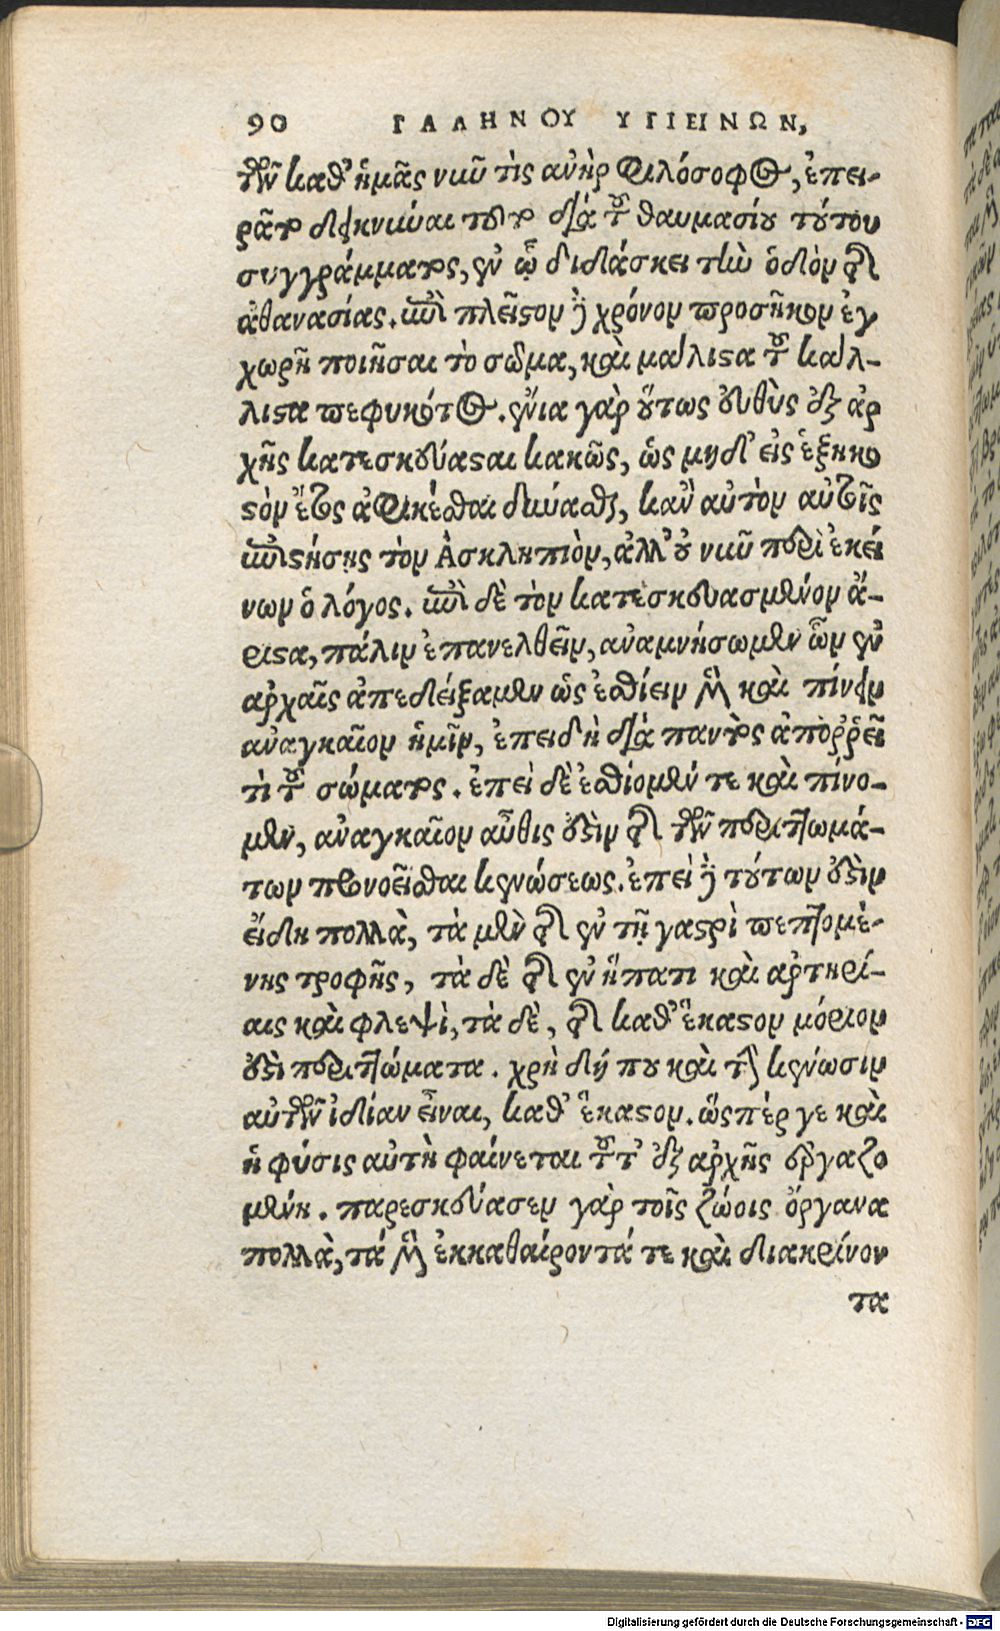 90 ΓΑΛΗΝΟΥ ΥΓΙΕΙΝΩΝ,
τῶν καθ' ἡμᾶς νῦν τὶς ἀνὴρ φιλόσοφος, ἐπει-
ρᾶτο δεικνύναι τοῦτο διὰ τοῦ θαυμασίου τούτου
συγγράμματος, ἐν ᾧ διδάσκει τὴν ὁδὸν τῆς
ἀθανασίας. ἐπὶ πλεῖστον δὲ χρόνον προσῆκον ἐγ
χωρεῖ ποιῆσαι τὸ σῶμα, καὶ μάλιστα τοῦ κάλ-
λιστα πεφυκότος. ἔνια γὰρ οὕτως εὐθὺς ἐξ ἀρ
χῆς κατεσκεύασαι κακῶς, ὡς μηδ' εἰς ἑξηκο
στὸν ἔτος ἀφικέσθαι δύνασθαι, κἂν αὐτὸν αὐτοῖς
ἐπιστήσης τὸν Ἀσκληπιὸν, ἀλλ' οὐ νῦν περὶ ἐκεί
νων ὁ λόγος. ἐπὶ δὲ τὸν κατεσκευασμένον ἄ-
ριστα, πάλιν ἐπανελθεῖν, ἀναμνήσωμεν ὧν ἐν
ἀρχαῖς ἀπεδείξαμεν ὡς ἐσθίειν μὲν καὶ πίνειν
ἀναγκαῖον ἡμῖν, ἐπειδὴ διὰ παντὸς ἀποῤῥεῖ
τὶ τοῦ σώματος. ἐπεὶ δὲ ἐσθίομέν τε καὶ πίνο-
μεν, ἀναγκαῖον αὖθις ἐστὶν τῆς τῶν περιττωμά-
των προνοεῖσθαι κενώσεως. ἐπεὶ δὲ τούτων ἐστὶν
εἴδη πολλὰ, τὰ μὲν τῆς ἐν τῇ γαστρὶ πεττομέ-
νης τροφῆς, τὰ δὲ τῆς ἐν ἥπατι καὶ ἀρτηρί-
αις καὶ φλεψὶ, τὰ δὲ, τῆς καθ' ἕκαστον μόριον
ἐστὶ περιττώματα. χρὴ δή που καὶ τὴν κένωσιν
αὐτῶν ἰδίαν εἶναι, καθ' ἕκαστον. ὥσπερ γε καὶ
ἡ φύσις αὐτὴ φαίνεται τοῦτ' ἐξ ἀρχῆς ἐργαζο
μένη. παρεσκεύασεν γὰρ τοῖς ζώοις ὄργανα
πολλὰ, τά μὲν ἐκκαθαίροντά τε καὶ διακρίνον
τα
Digitalisierung gefördert durch die Deutsche Forschungsgemeinschaft - DFG